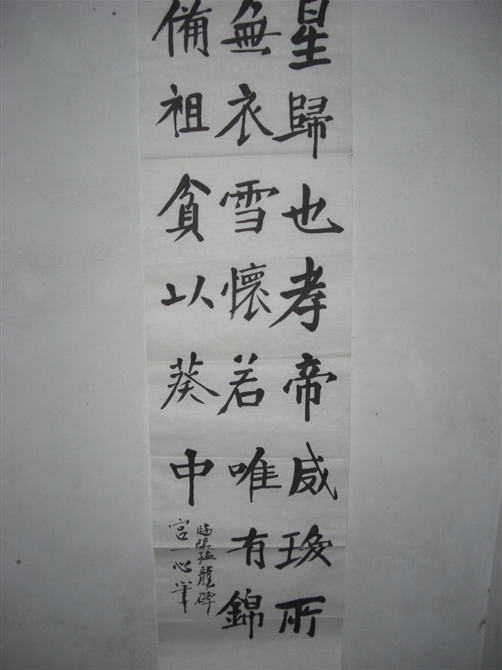 星歸也孝帝威瑗所
無衣雪懷若唯有錦
備祖貪以葵中
临張猛龍碑
宫一心筆